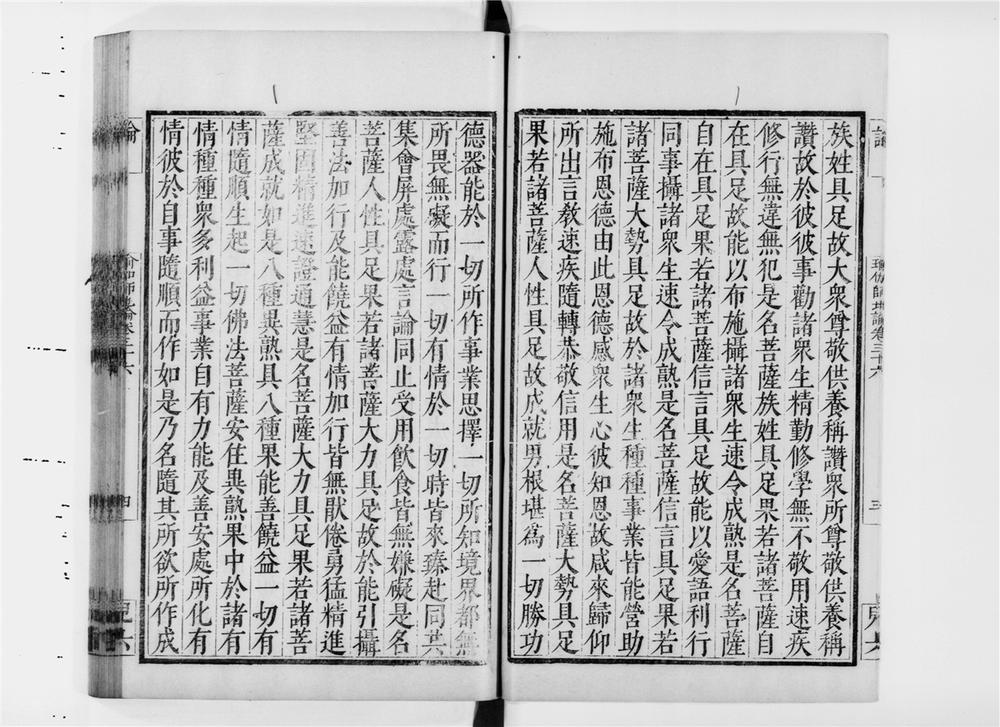 族姓具足故大衆尊敬供養稱讚衆所尊敬供養稱
讚故於彼彼事勸諸衆生精勤修學無不敬用速疾
修行無違無犯是名菩薩族姓具足果若諸菩薩自
在具足故能以布施攝諸衆生速令成熟是名菩薩
自在具足果若諸菩薩信言具足故能以愛語利行
同事攝諸衆生速令成熟是名菩薩信言具足果若
諸菩薩大勢具足故於諸衆生種種事業皆能營助
施布恩德由此恩德感衆生心彼知恩故咸來歸仰
所出言教速疾隨轉恭敬信用是名菩薩大勢具足
果若諸菩薩人性具足故成就男根堪爲一切勝功
瑜伽師地論卷三十六
三
德器能於一切所作事業思擇一切所知境界都無
所畏無礙而行一切有情於一切時皆來臻赴同共
集會屏處露處言論同止受用飲食皆無嫌礙是名
菩薩人性具足果若諸菩薩大力具足故於能引攝
善法加行及能饒益有情加行皆無猒倦勇猛精進
堅固精進速證通慧是名菩薩大力具足果若諸菩
薩成就如是八種異熟具八種果能善饒益一切有
情隨順生起一切佛法菩薩安住異熟果中於諸有
情種種衆多利益事業自有力能及善安處所化有
情彼於自事隨順而作如是乃名隨其所欲所作成
四